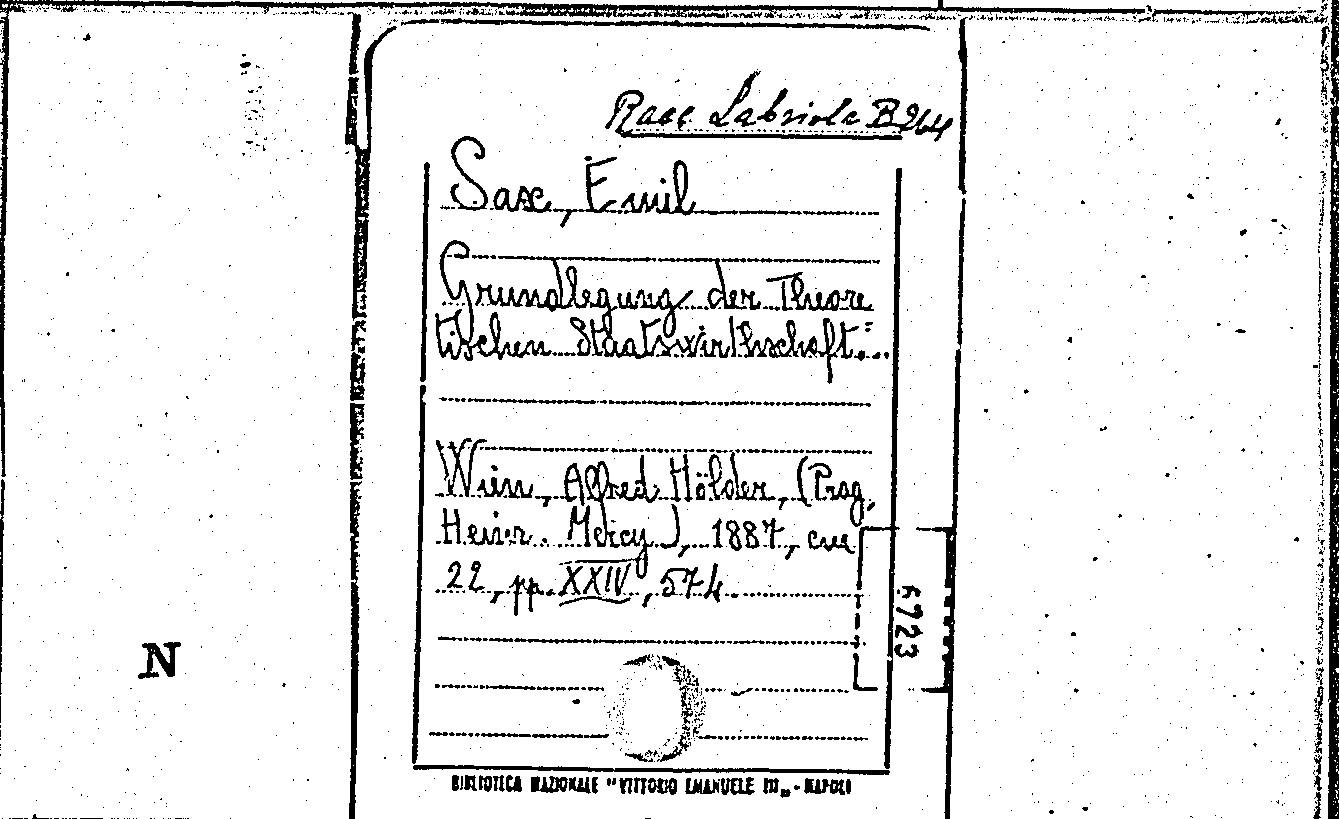 Racc Labriola B 264
Sax, Emil
Grundlegung der Theore
tischen Staatswirthschaft...
Wien, Alfred Hölder, (Prag,
Heinr. Mercy), 1887, cm
22, pp. XXIV, 574.
6723
N
BIBLIOTECA NAZIONALE "VITTORIO EMANUELE III„ - NAPOLI